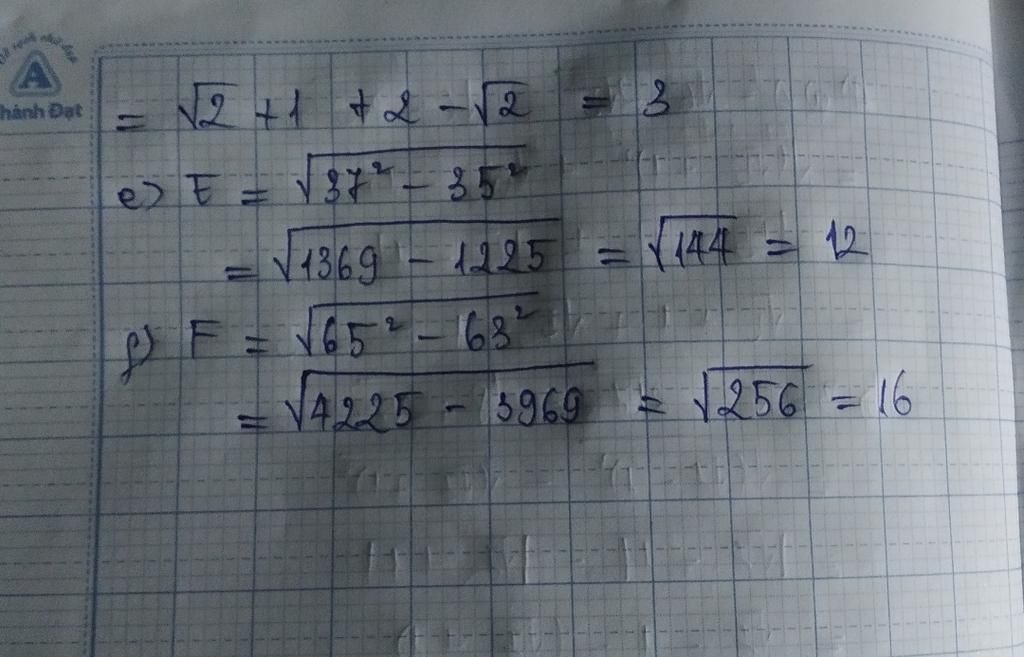 A
hành Đạt
= √2 + 1 + 2 - √2 = 3
e) E = √(37² - 35²)
= √(1369 - 1225) = √144 = 12
f) F = √(65² - 63²)
= √(4225 - 3969) = √256 = 16